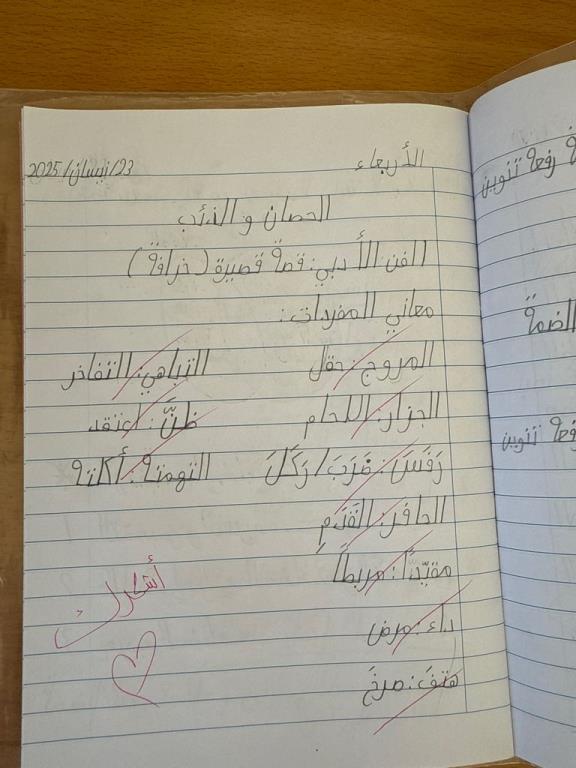 الأربعاء 23/نيسان/2025
الحصان و الذئب
الفن الأدبي: قصة قصيرة (خرافة)
معاني المفردات:
المروج: حقل التباهي: التفاخر
الجزار: اللحام ظنَّ: اعتقد
رَفَسَ: ضَرَبَ/رَكَلَ التهمته: أكلته
الحافر: القَدَمِ
مقيّداً: مربطاً
داء: مرض
هتفَ: صرخَ
أشكرك
ة رفعة تنوين
الضمة
رفعة تنوين